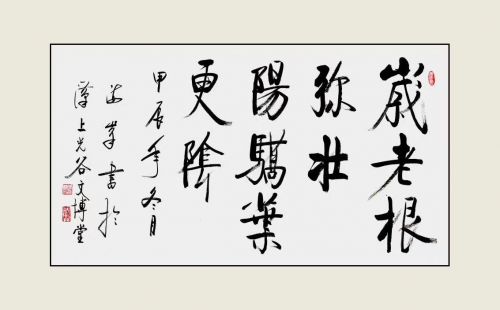 歲老根
弥壮
陽驕葉
更陰
甲辰年冬月
書於
漢上光谷文博堂